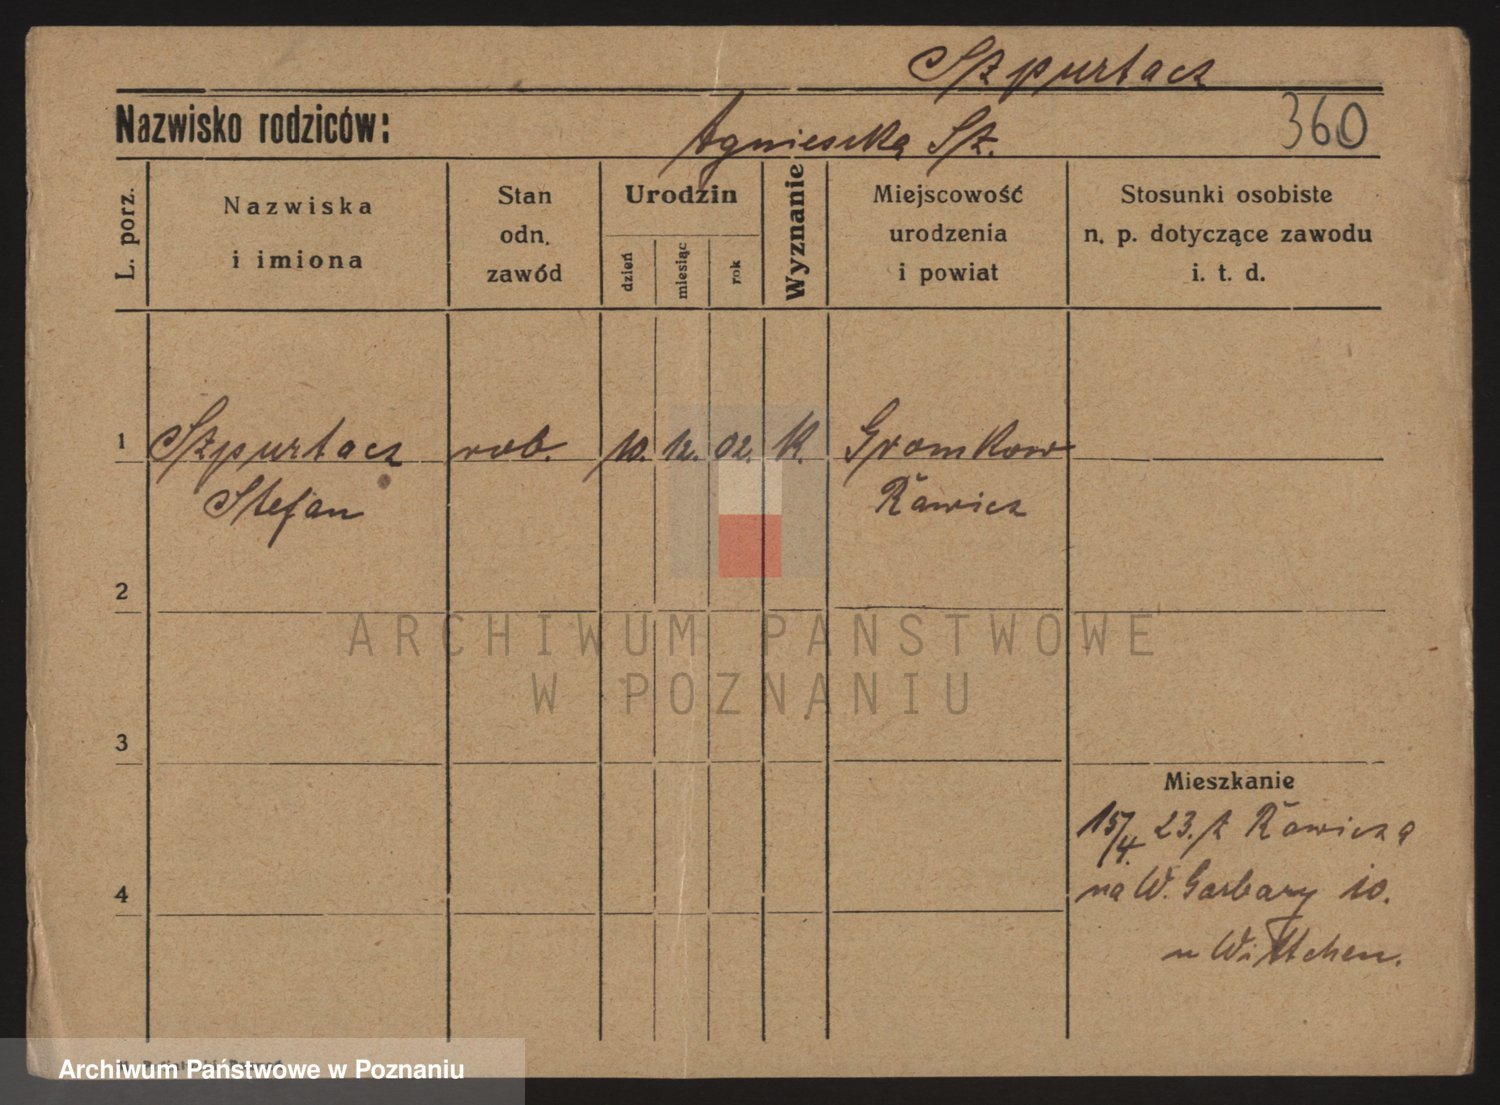 Szpurtacz
Nazwisko rodziców:
Agnieszka Sz.
360
L. porz.
Nazwiska
i imiona
Stan
odn.
zawód
Urodzin
dzień
miesiąc
rok
Wyznanie
Miejscowość
urodzenia
i powiat
Stosunki osobiste
n. p. dotyczące zawodu
i. t. d.
1 Szpurtacz rob. 10. 12. 02. K. Gromkow
Stefan Rawicz
2
ARCHIWUM PAŃSTWOWE
W POZNANIU
3
Mieszkanie
15/4. 23. z Rawicza
4
na W. Garbary 10.
u Wittchen.
Archiwum Państwowe w Poznaniu